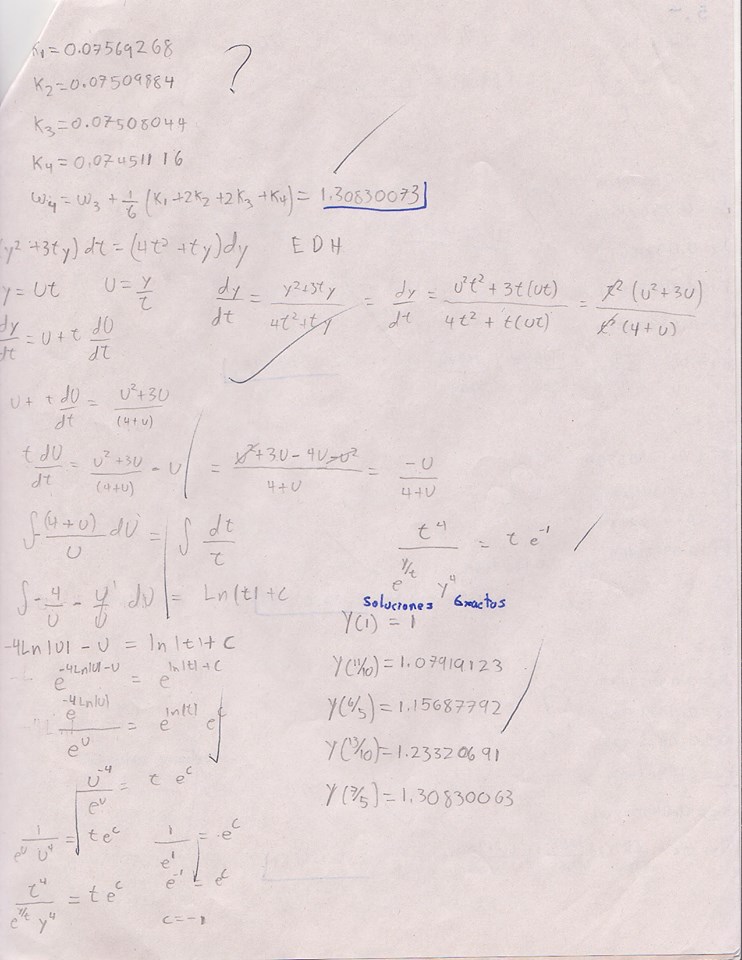 K₁ = 0.07569268
K₂ = 0.07509884
?
K₃ = 0.07508044
K₄ = 0.07451116
ω₄ = ω₃ + 1/6 (K₁ + 2K₂ + 2K₃ + K₄) = 1.30830073
(y² + 3ty) dt = (4t² + ty) dy EDH
y = Ut U = y/t dy/dt = (y² + 3ty)/(4t² + ty) = dy/dt = (U²t² + 3t(Ut))/(4t² + t(Ut)) = t²(U² + 3U)/t²(4 + U)
dy/dt = U + t dU/dt
U + t dU/dt = (U² + 3U)/(4+U)
t dU/dt = (U² + 3U)/(4+U) - U = (U² + 3U - 4U - U²)/(4+U) = -U/(4+U)
∫ -(4+U)/U dU = ∫ dt/t
∫ -4/U - U/U dU = Ln|t| + C
-4Ln|U| - U = ln|t| + C
e^(-4Ln|U|-U) = e^(ln|t|+C)
e^(-4Ln|U|)/e^U = e^(ln|t|) e^C
U⁻⁴/e^U = t e^C
1/(e^U U⁴) = t e^C 1/e¹ = e^C
e⁻¹ = e^C
t⁴/(e^(y/t) y⁴) = t e^C c = -1
t⁴/(e^(y/t) y⁴) = t e⁻¹
Soluciones Exactas
Y(1) = 1
Y(11/10) = 1.07919123
Y(6/5) = 1.15687792
Y(13/10) = 1.23320691
Y(7/5) = 1.30830063